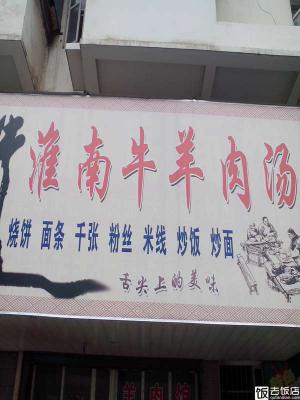 淮南牛羊肉汤
烧饼 面条 千张 粉丝 米线 炒饭 炒面
舌尖上的美味
羊肉馆
饭去饭店